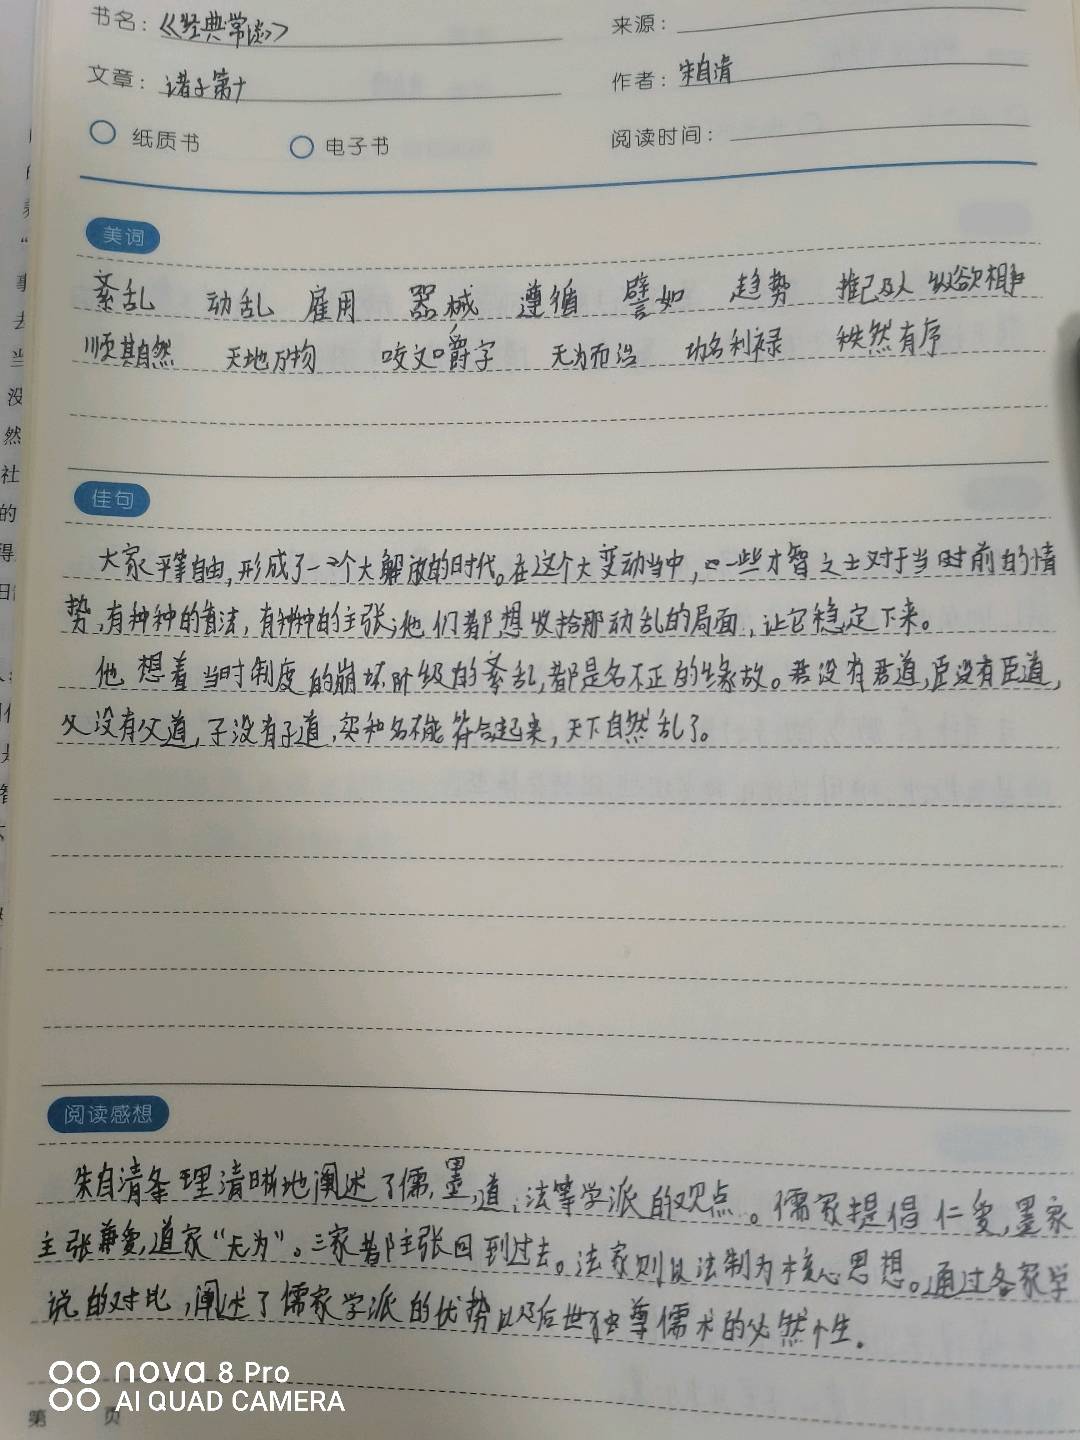 书名：《经典常谈》 来源：
文章：诸子第十 作者：朱自清
纸质书 电子书 阅读时间：
美词
紊乱 动乱 雇用 器械 遵循 譬如 趋势 推己及人 纵欲相争
顺其自然 天地万物 咬文嚼字 无为而治 功名利禄 秩然有序
佳句
大家平等自由,形成了一个大解放的时代。在这个大变动当中,一些才智之士对于当时前的情
势,有种种的看法,有种种的主张;他们都想收拾那动乱的局面,让它稳定下来。
他想着当时制度的崩坏,阶级的紊乱,都是名不正的缘故。君没有君道,臣没有臣道,
父没有父道,子没有子道,实和名不能符合起来,天下自然乱了。
阅读感想
朱自清条理清晰地阐述了儒,墨,道,法等学派的观点。儒家提倡仁爱,墨家
主张兼爱,道家“无为”。三家都主张回到过去。法家则以法制为核心思想。通过各家学
说的对比,阐述了儒家学派的优势以及后世独尊儒术的必然性。
nova 8 Pro
AI QUAD CAMERA
第 页